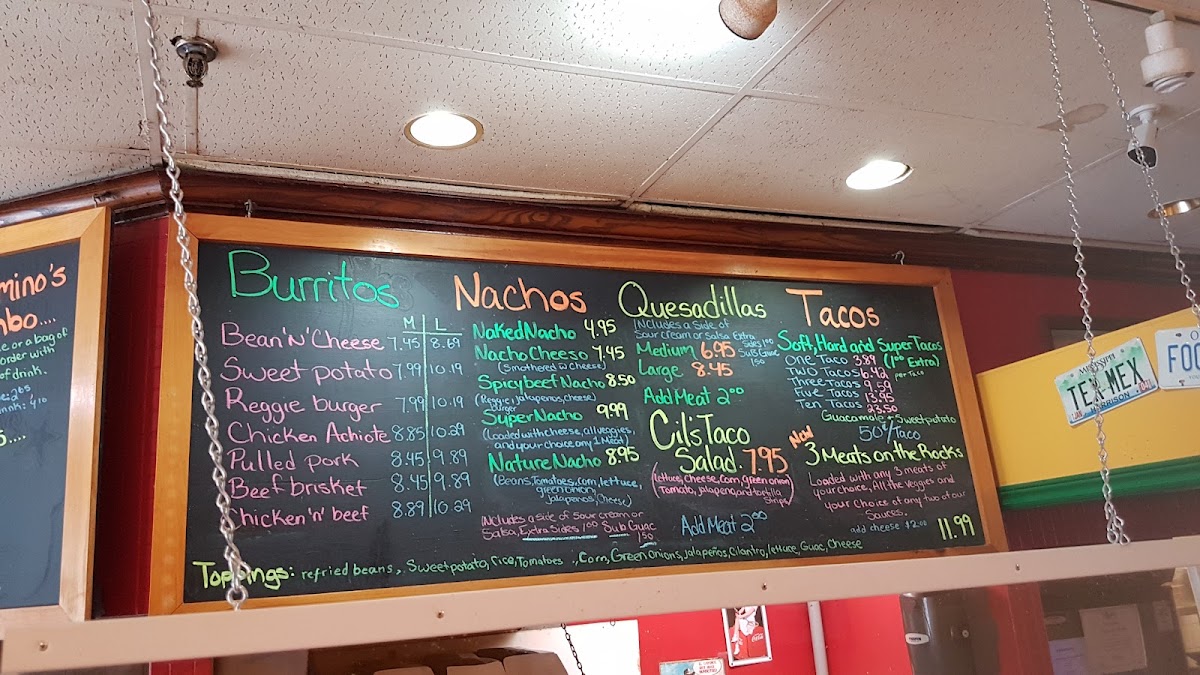 mino's
mbo....
e or a bag of
order with
of drink.
Burritos
M L
Bean 'N' Cheese 7.45 8.69
Sweet potato 7.99 10.19
Reggie burger 7.99 10.19
Chicken Achiote 8.85 10.29
Pulled pork 8.45 9.89
Beef brisket 8.45 9.89
Chicken 'n' beef 8.89 10.29
Nachos
Naked Nacho 4.95
Nacho Cheeso 7.45
(Smothered w Cheese)
Spicy beef Nacho 8.50
(Reggie, Jalapenos, cheese)
burger
Super Nacho 9.99
(Loaded with cheese, all veggies,
and your choice any 1 Meat)
Nature Nacho 8.95
(Beans, Tomatoes, corn, lettuce,
green onion,
jalapenos, cheese)
INCludes a side of sour cream or
Salsa, Extra Sides 1.00 Sub Guac
1.50
Quesadillas
INCludes a side of
Sour cream or salsa Extra
Sides 1.00
Medium 6.95 Sub Guac
1.50
Large 8.45
Add Meat 2.00
Cil's Taco
Salad. 7.95
(lettuce, cheese, corn, green onion)
Tomato, jalapeno, and tortilla
Strips)
Add Meat 2.00
Tacos
Soft, Hard and Super Tacos
(1.00 Extra)
per Taco
One Taco 3.89
Two Tacos 6.43
Three Tacos 9.59
Five Tacos 13.95
Ten Tacos 23.50
Guacamole + Sweet potato
50¢/Taco
New
3 Meats on the Rocks
Loaded with any 3 meats of
your choice, All the Veggies and
your choice of any two of our
Sauces.
add cheese $2.00
11.99
Toppings: refried beans, Sweet potato, rice, Tomatoes, Corn, Green Onions, Jalapeños, Cilantro, lettuce, Guac, Cheese
TEX MEX
HARRISON
FOO